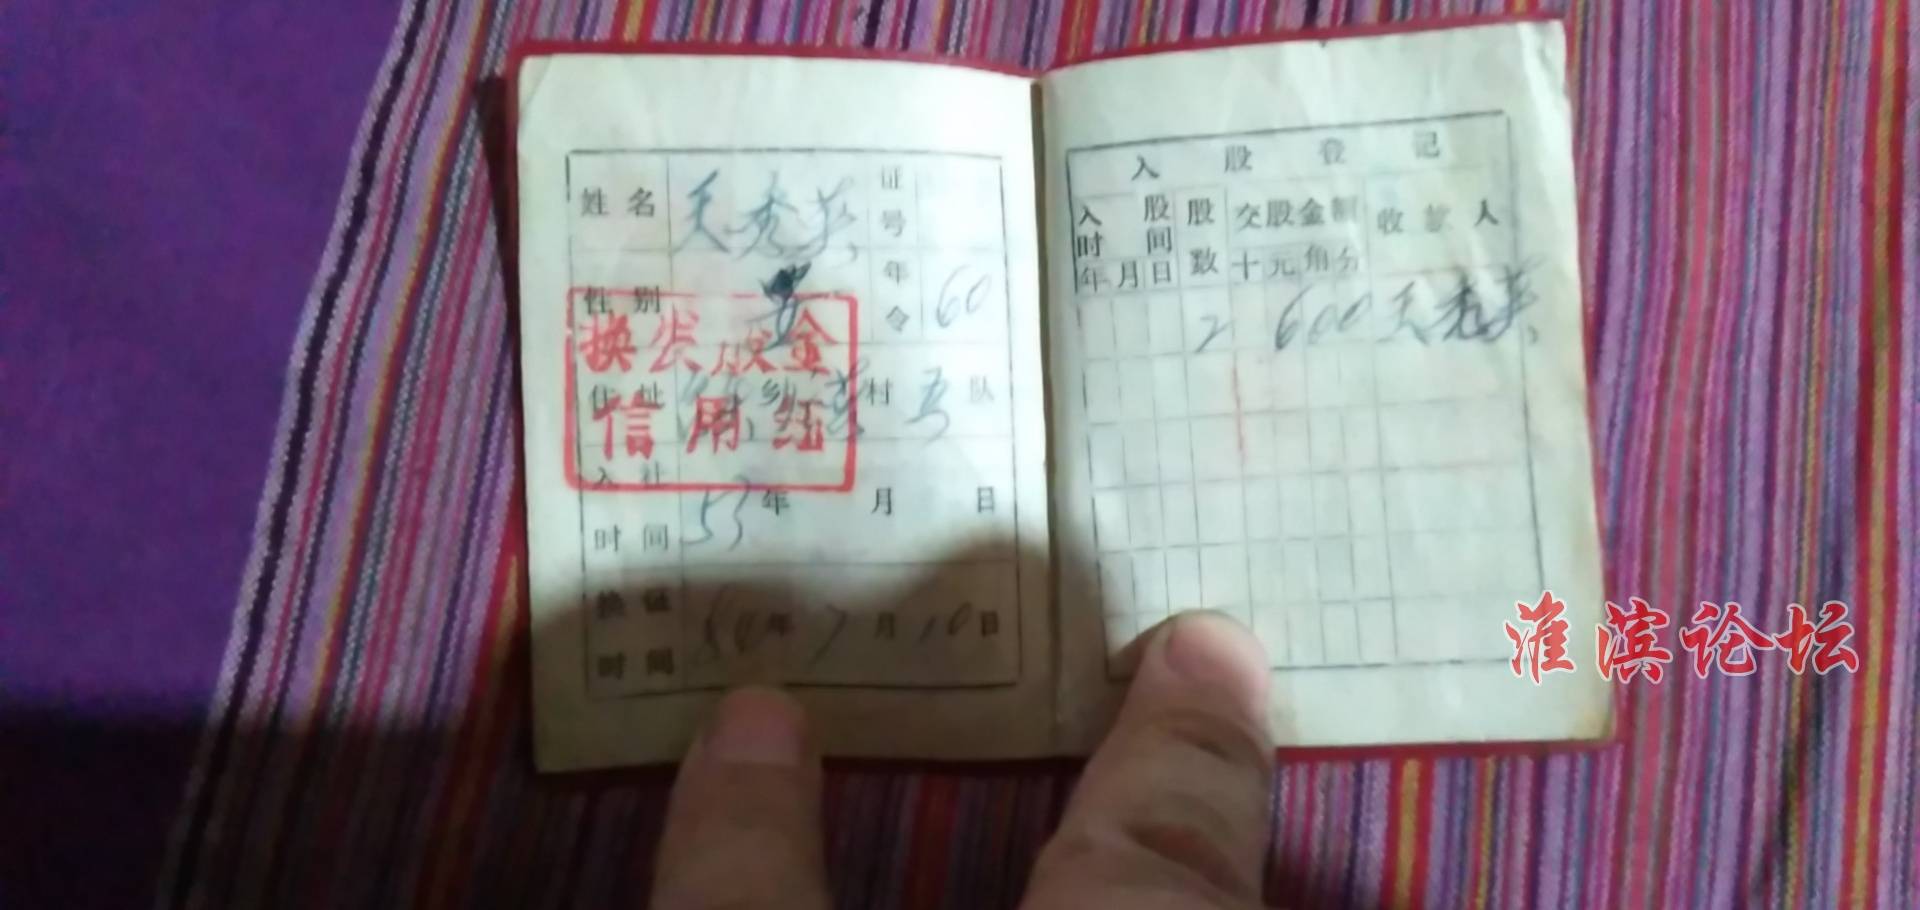 姓名 关秀英 证号
性别 女 年令 60
换发股金
住址 乡 村 五 队
信用红
入社时间 53年 月 日
换证时间 84年7月10日
入股登记
入股时间 股数 交股金额 收款人
年 月 日 十 元 角 分
2 600 关秀英
淮滨论坛